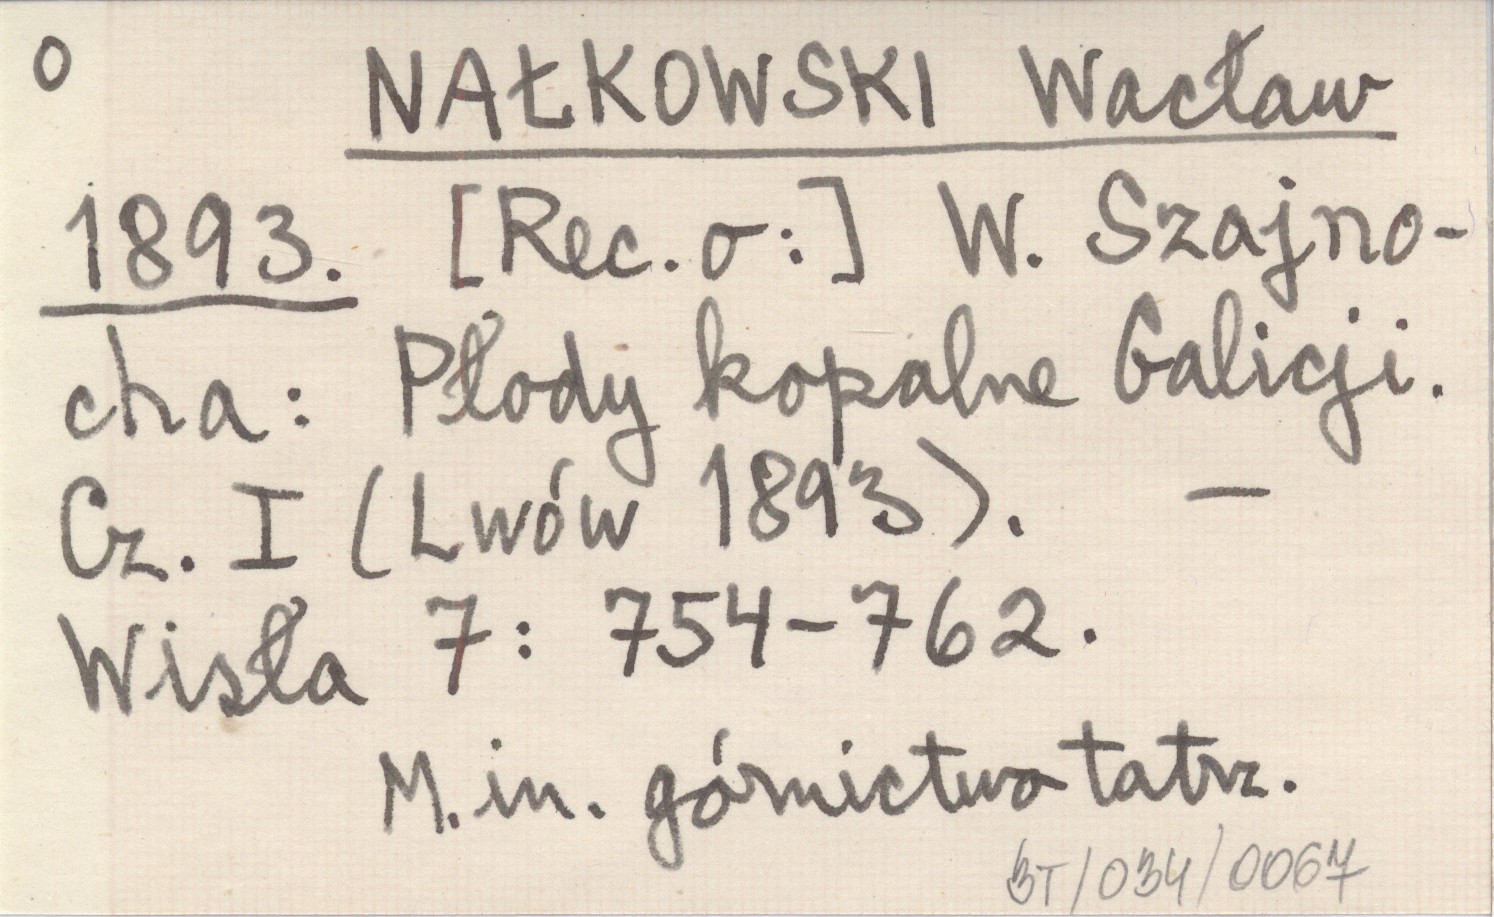 O
NAŁKOWSKI Wacław
1893. [Rec. o:] W. Szajno-
cha: Płody kopalne Galicji.
Cz. I (Lwów 1893). —
Wisła 7: 754-762.
M.in. górnictwo tatrz.
BT/034/0067